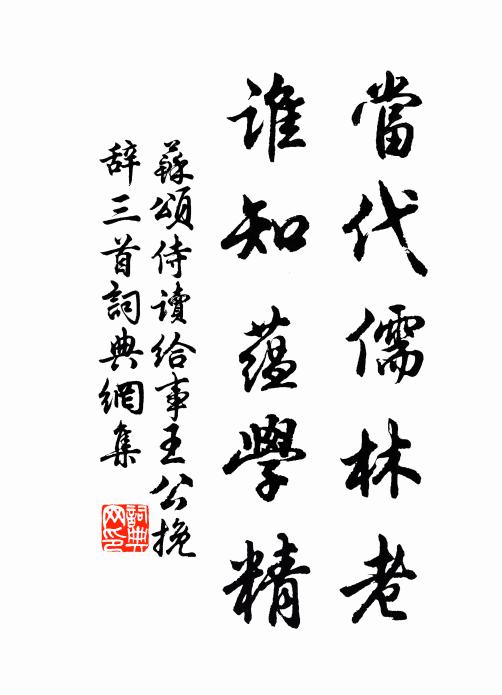 當代儒林老
誰知蘊學精
蘇頌侍讀給事王公挽
辞三首詞典網集
詞典
网印